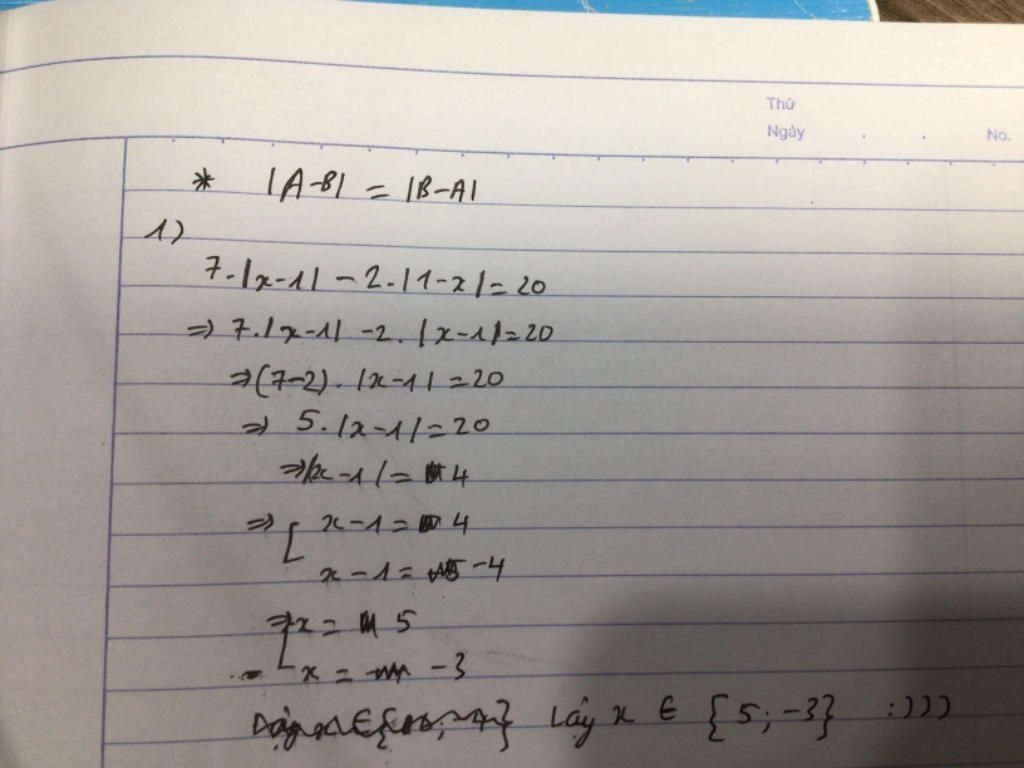 Thứ
Ngày . . No.
* |A-B| = |B-A|
1)
7.|x-1| - 2.|1-x| = 20
⇒ 7.|x-1| -2. |x-1| = 20
⇒ (7-2). |x-1| = 20
⇒ 5.|x-1| = 20
⇒ |x-1| = 4
⇒ [ x-1 = 4
x-1 = -4
⇒ [ x = 5
x = -3
Vậy x ∈ {5; -3} :)))